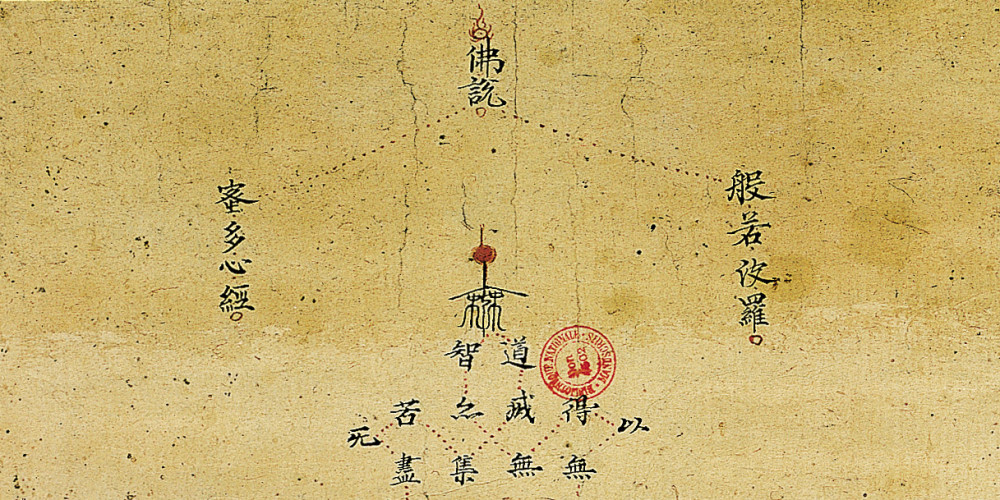 佛説
般若波羅
蜜多心經
道
智
得滅亦苦
以
死
無無集盡
BIBLIOTHEQUE NATIONALE
MANUSCRITS